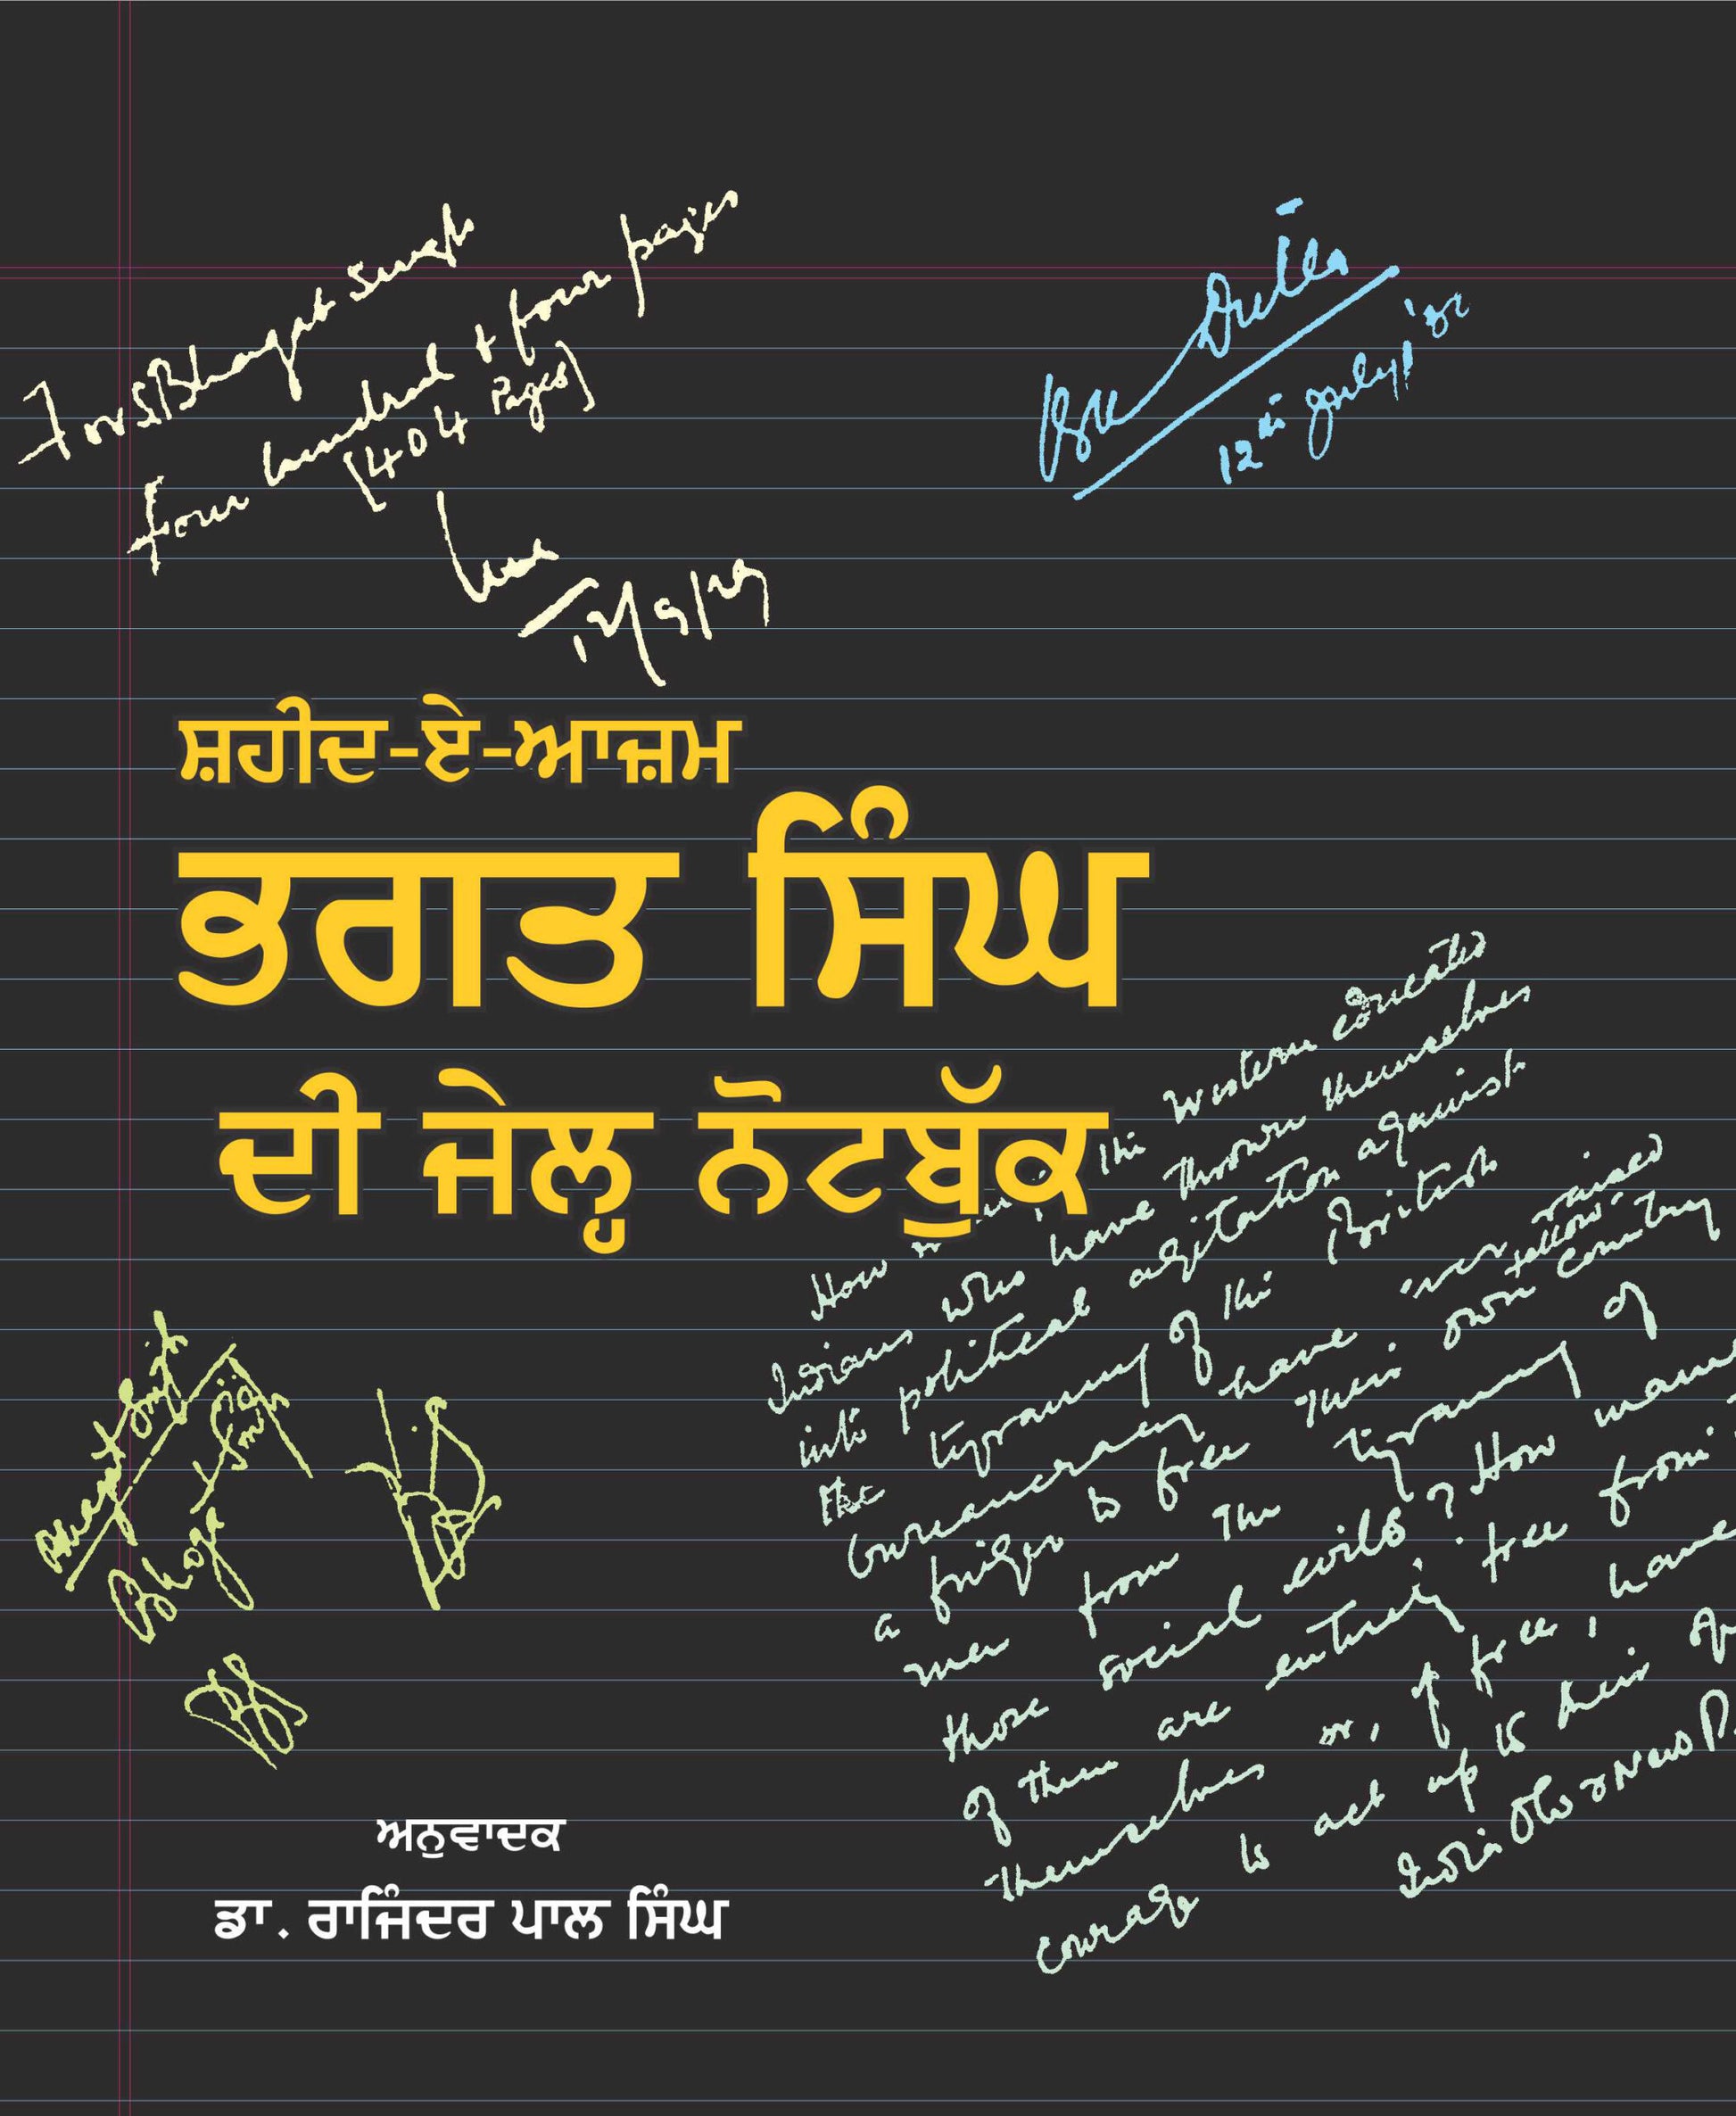 For S. Bhagat Singh
Four hundred & four pages
(404 Pages)
12/9/29
12th July '30
ਸ਼ਹੀਦ-ਏ-ਆਜ਼ਮ
ਭਗਤ ਸਿੰਘ
ਦੀ ਜੇਲ੍ਹ ਨੋਟਬੁੱਕ
the Western educated
Indians who have thrown themselves
into political agitation against
the tyranny of the British
have ever raised
a finger to free their own fellow-country
men from the tyranny of
those social evils? How many
of them are entirely free from
themselves or, if free, have
courage to act up to their
Bhagat Singh
ਅਨੁਵਾਦਕ
ਡਾ. ਰਾਜਿੰਦਰ ਪਾਲ ਸਿੰਘ